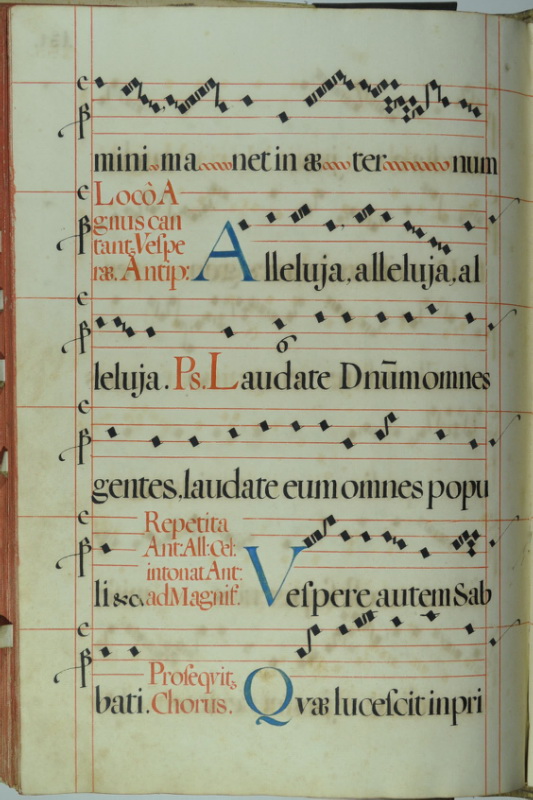 mini ma net in æ ter num
Locò A
gnus can
tant; Veſpe
ræ. Antip:
Alleluja, alleluja, al
leluja. Ps. Laudate Dnūm omnes
gentes, laudate eum omnes popu
li &c.
Repetita
Ant: All: Cel:
intonat Ant:
ad Magnif.
Veſpere autem Sab
bati.
Proſeqvit;
Chorus.
Qvæ luceſcit in pri